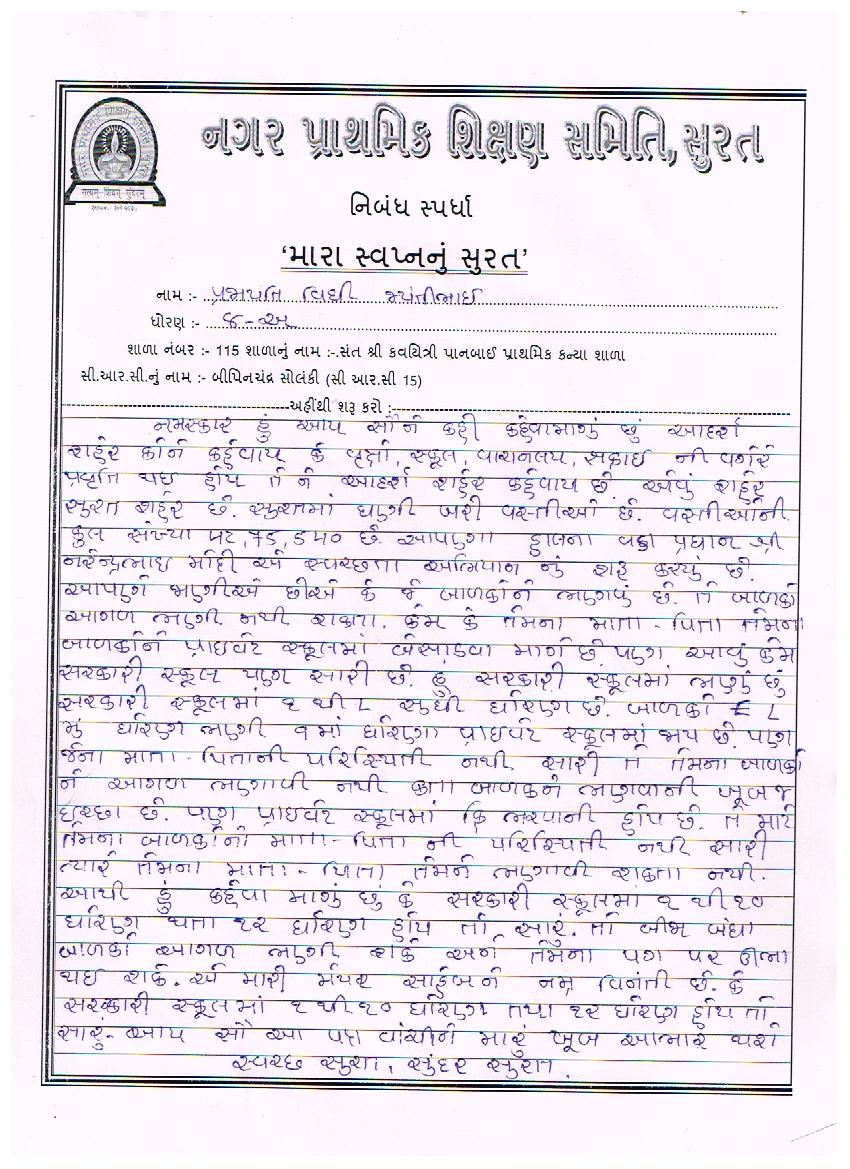 નગર પ્રાથમિક શિક્ષણ સમિતિ, સુરત
સત્યમ-શિવમ-સુંદરમ
નિબંધ સ્પર્ધા
‘મારા સ્વપ્નનું સુરત’
નામ :- પ્રજાપતિ વિધી જયંતીભાઈ
ધોરણ :- ૪-અ
શાળા નંબર :- 115 શાળાનું નામ :-.સંત શ્રી કવયિત્રી પાનબાઈ પ્રાથમિક કન્યા શાળા
સી.આર.સી.નું નામ :- બીપિનચંદ્ર સોલંકી (સી આર.સી 15)
અહીંથી શરૂ કરો :-
નમસ્કાર હું આપ સૌને કહી કહેવામાગું છું આદર્શ
શહેર કોને કહેવાય કે વૃક્ષો, સ્કૂલ, વાચનલય, સફાઇ ની વગેરે
પ્રવૃત્તિ થઇ હોય તે ને આદર્શ શહેર કહેવાય છે. એવું શહેર
સુરત શહેર છે. સુરતમાં ઘણી બધી વસ્તીઓ છે. વસ્તીઓની
કુલ સંખ્યા છે. આપણા હાલના વડા પ્રધાન શ્રી
નરેન્દ્રભાઇ મોદી એ સ્વચ્છતા અભિયાન નું શરૂ કર્યું છે.
આપણે જાણીએ છીએ કે જે બાળકોને ભણવું છે. તે બાળકો
આગળ ભણી નથી શકતા. કેમ કે તેમના માતા-પિતા તેમના
બાળકોને પ્રાઇવેટ સ્કૂલમાં બેસાડવા માગે છે. પણ આવું કેમ
સરકારી સ્કૂલ પણ સારી છે. હું સરકારી સ્કૂલમાં ભણું છું
સરકારી સ્કૂલમાં ૧ થી ૮ સુધી ધોરણ છે. બાળકો ૮
મું ધોરણ ભણી ૯માં ધોરણ પ્રાઇવેટ સ્કૂલમાં જાય છે. પણ
જેના માતા-પિતાની પરિસ્થિતી નથી. સારી તે તેમના બાળકો
ને આગળ ભણાવી નથી બાળકને ભણવાની ખૂબ જ
ઇચ્છા છે. પણ પ્રાઇવેટ સ્કૂલમાં ફિ ભરવાની હોય છે. તે માટે
તેમના બાળકોની માતા-પિતા ની પરિસ્થિતી નથી સારી
ત્યારે તેમના માતા-પિતા તેમને ભણાવી શકતા નથી.
આથી હું કહેવા માગું છું કે સરકારી સ્કૂલમાં ૧ થી ૧૦
ધોરણ થતા ૧૨ ધોરણ હોય તો સારું. તો બીજા બધા
બાળકો આગળ ભણી શકે અને તેમના પગ પર ઊભા
થઇ શકે. એ મારી મેયર સાહેબ ને નમ્ર વિનંતી છે. કે
સરકારી સ્કૂલમાં ૧થી૧૦ ધોરણ તથા ૧૨ ધોરણ હોય તો
સારું. આપ સૌ આ પત્ર વાંચીને મારું ખૂબ આભાર થશે
સ્વચ્છ સુરત, સુંદર સુરત.